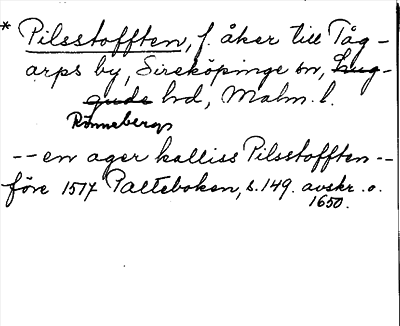 * Pilsstofften, f. åker till Tåg-
arps by, Sireköpinge sn, Lug-
gude hd, Malm. l.
Rönnebergs
-- en ager kalliss Pilsstofften --
före 1517 Palteboken, s. 149. avskr. o.
1650.